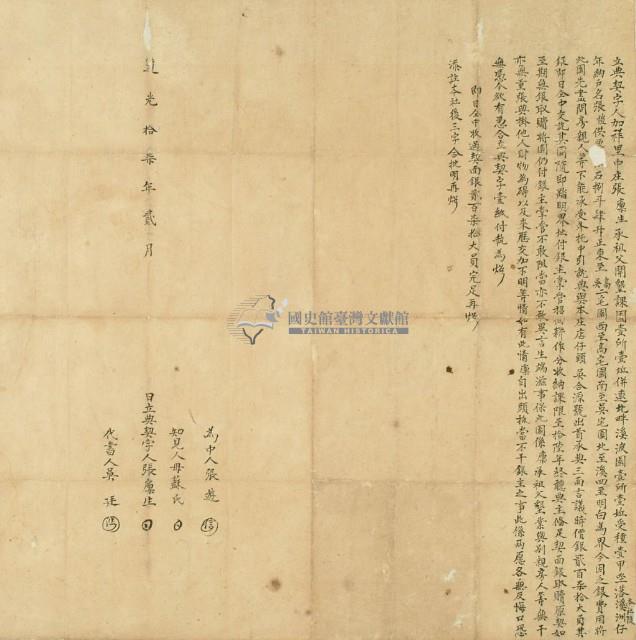 立典契字人加祥里中庄張廪生承祖父開墾課因壹所壹坵併連北畔溪波園壹所壹坵受種壹甲坐落溪洲仔本社後
年納戶名張 供 石捌斗肆升正東至吳高二宅園西至高宅園南至莫宅園北至溪四至明白為界今因乏銀費用將
此園先盡問房親人等不能承受外托中引就典與本庄店仔頭吳合源號出首承典三面言議時價銀貳百柒拾大員其
銀即日仝中交訖其園隨即踏明界址付銀主掌管招佃耕作分收納課限至拾陸年終聽典主備足契面銀取贖原契如
至期無銀取贖將園仍付銀主掌管不敢阻當亦不敢異言生端滋事保此園係廪承祖父墾業與別親房人等無干
亦無重張典掛他人財物為碍以及來歷交加不明等情如有此情廪自出頭抵當不干銀主之事此係兩愿各無反悔口恐
無憑今欲有憑合立典契字壹紙付執為炤
即日仝中收過契面銀貳百柒拾大員完足再炤
添註本社後三字合批明再炤
道光拾柒年貳月
為中人張 
知見人母蘇氏
日立典契字人張廪生
代書人吳廷
國史館臺灣文獻館
TAIWAN HISTORICA